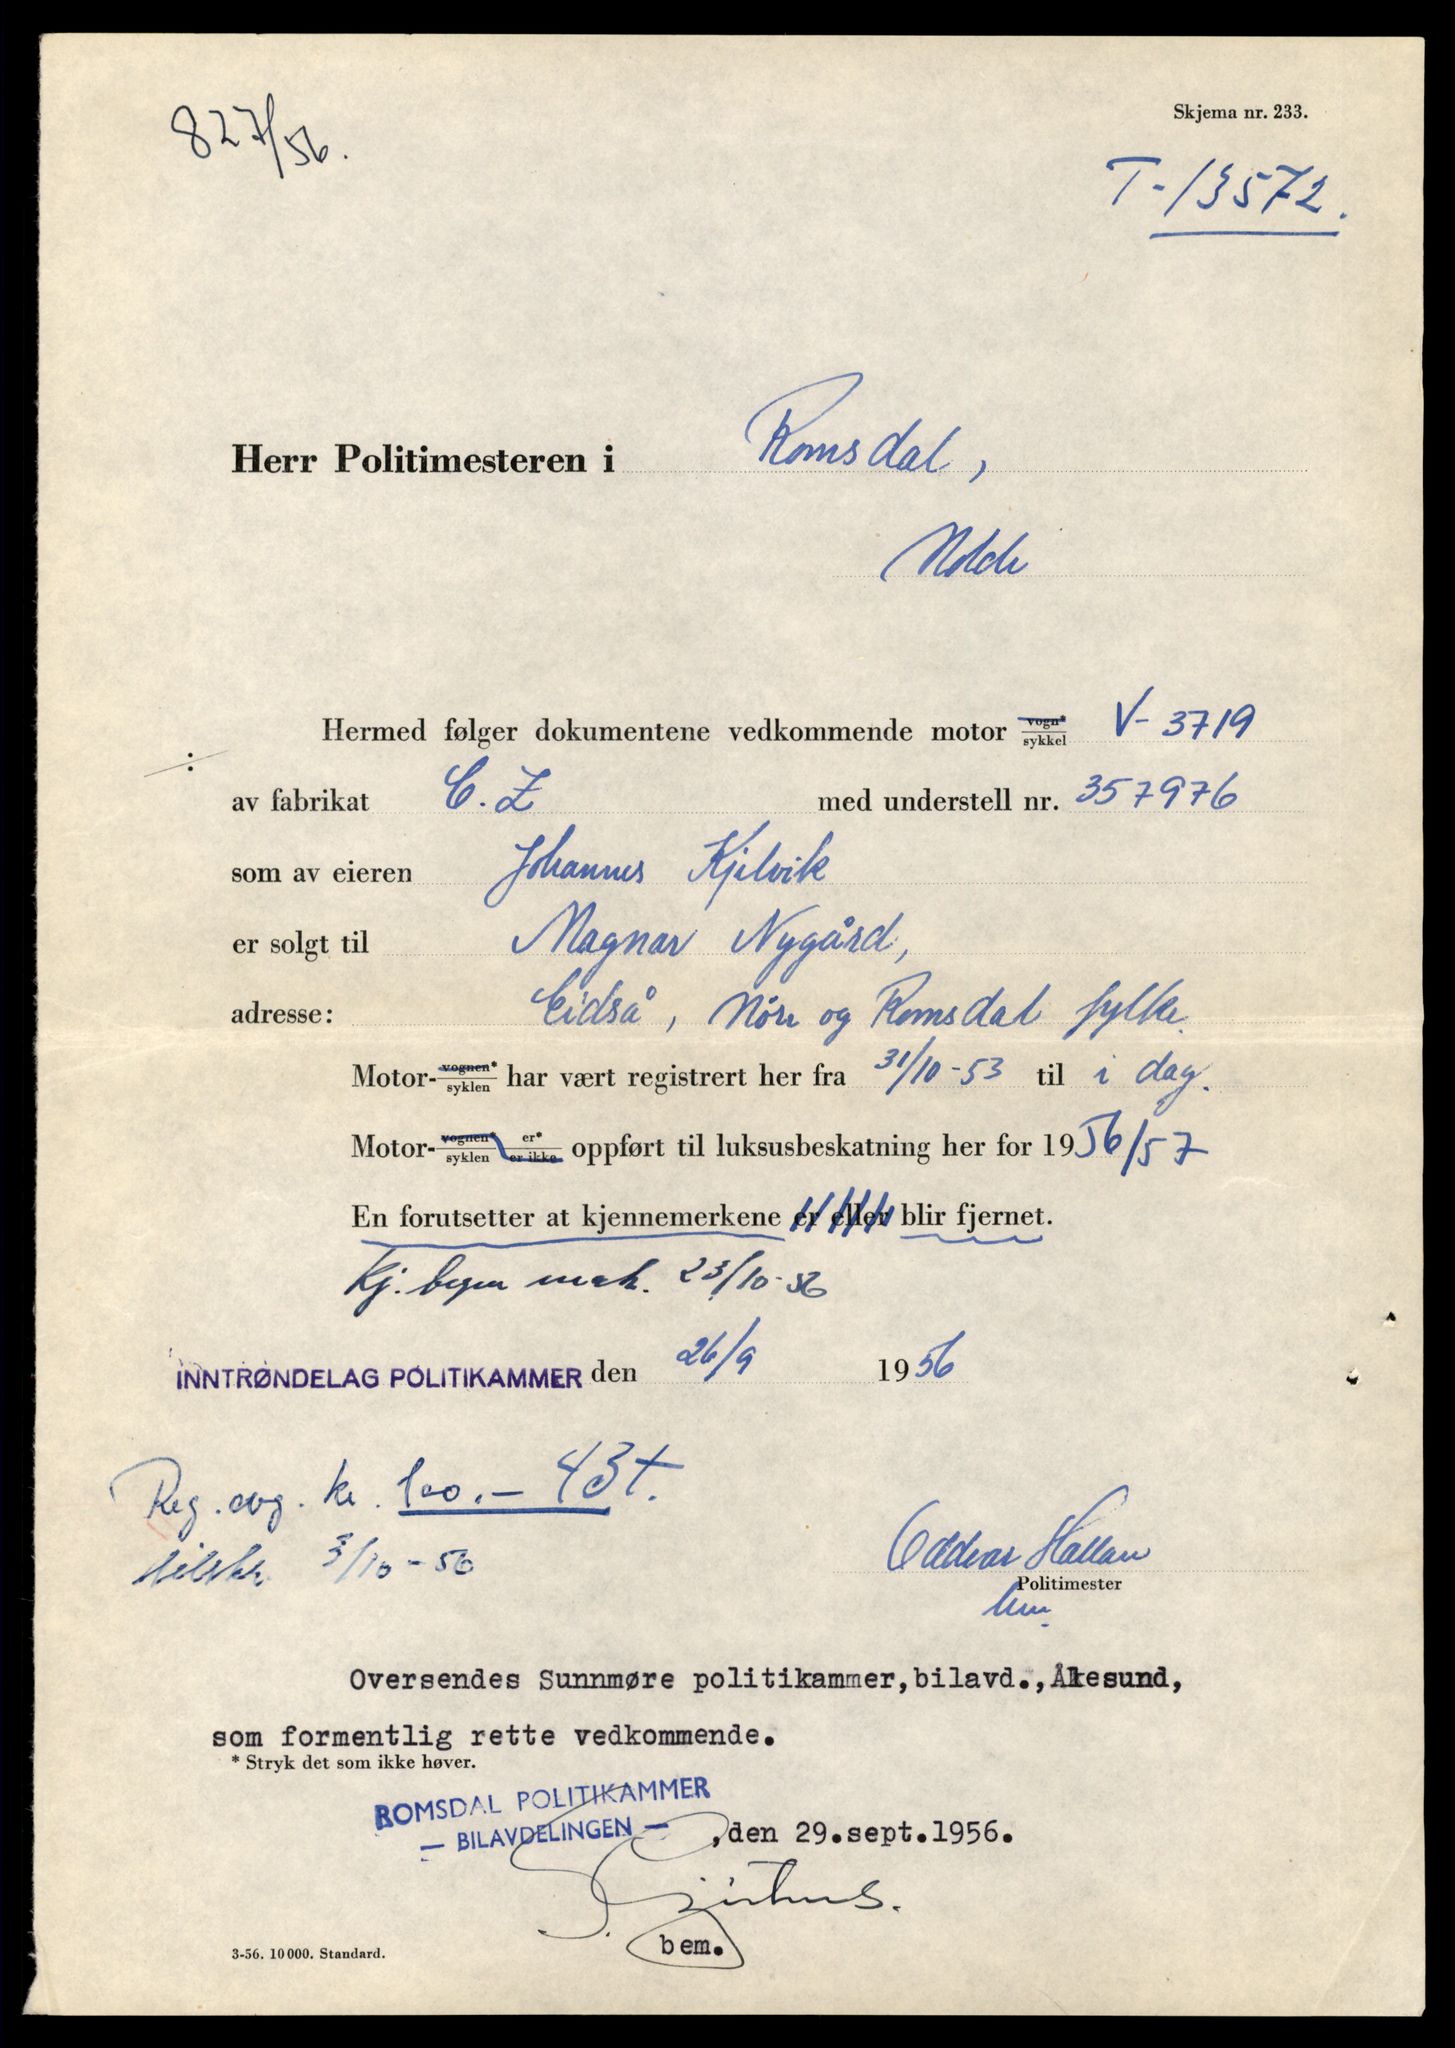 827/56.
Skjema nr. 233.
T-13572.
Herr Politimesteren i Romsdal,
Molde
Hermed følger dokumentene vedkommende motor vogn* sykkel V-3719
av fabrikat C.Z med understell nr. 357976
som av eieren Johannes Kjelvik
er solgt til Magnar Nygård,
adresse: Eidså, Möre og Romsdal fylke.
Motor- vognen* syklen har vært registrert her fra 31/10-53 til i dag.
Motor- vognen* syklen er* er ikke oppført til luksusbeskatning her for 1956/57
En forutsetter at kjennemerkene er eller blir fjernet.
Kj. 23/10-56
INNTRØNDELAG POLITIKAMMER den 26/9 1956
Reg. avg. kr. 100.- 43t.
3/10-56
Oddvar Hallan
Politimester
Oversendes Sunnmøre politikammer, bilavd., Ålesund,
som formentlig rette vedkommende.
* Stryk det som ikke høver.
ROMSDAL POLITIKAMMER
— BILAVDELINGEN — , den 29.sept.1956.
bem.
3-56. 10 000. Standard.